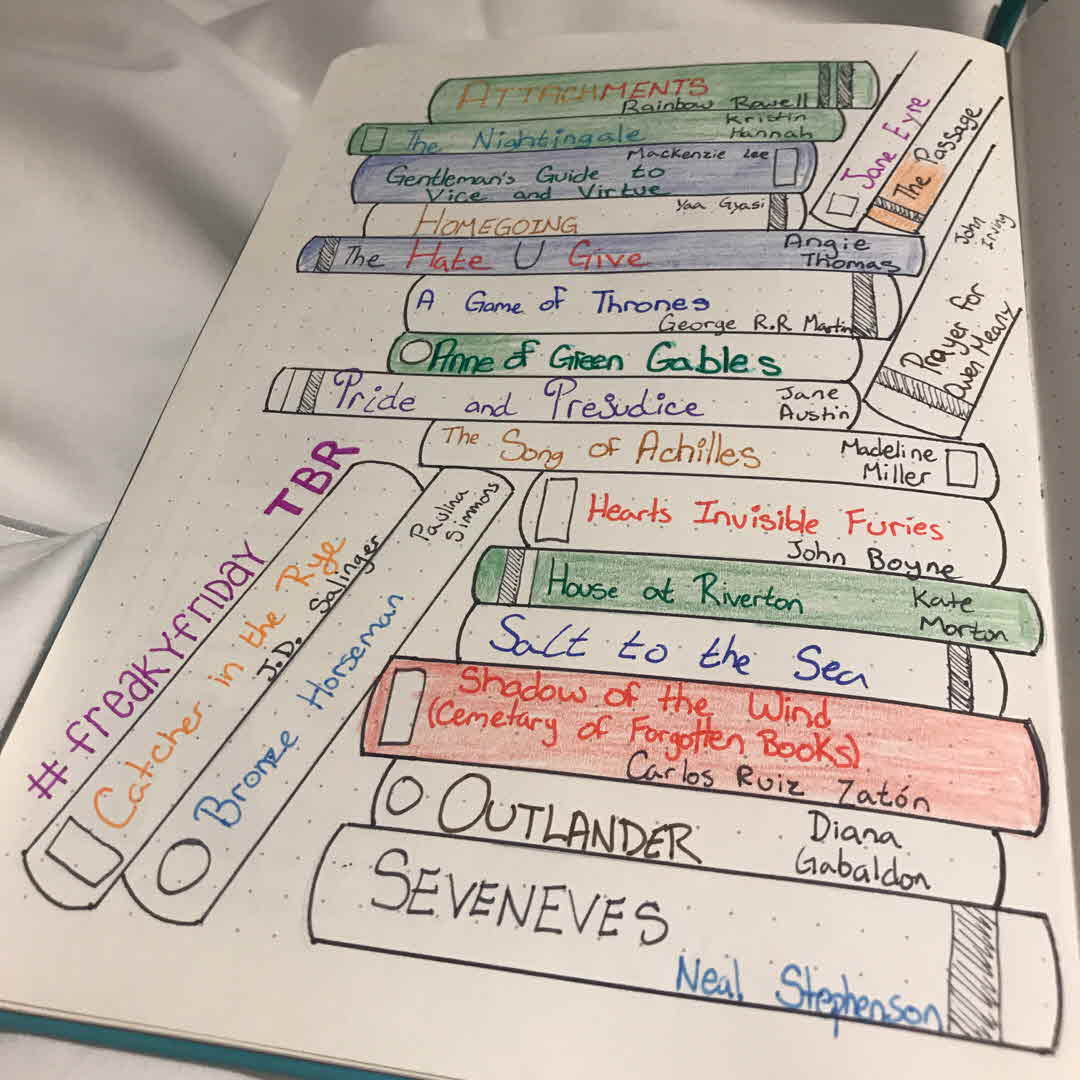 ATTACHMENTS
Rainbow Rowell
The Nightingale
Kristin
Hannah
Mackenzie Lee
Gentleman's Guide to
Vice and Virtue
Yaa Gyasi
HOMEGOING
The Hate U Give
Angie
Thomas
A Game of Thrones
George R.R Martin
Anne of Green Gables
Pride and Prejudice
Jane
Austin
The Song of Achilles
Madeline
Miller
Hearts Invisible Furies
John Boyne
House at Riverton
Kate
Morton
Salt to the Sea
Shadow of the Wind
(Cemetary of Forgotten Books)
Carlos Ruiz Zatón
OUTLANDER
Diana
Gabaldon
SEVENEVES
Neal Stephenson
Jane Eyre
The Passage
John
Irving
Prayer for
Owen Meany
#freakyfriday TBR
Catcher in the Rye
J.D. Salinger
Bronze Horseman
Paulina
Simmons